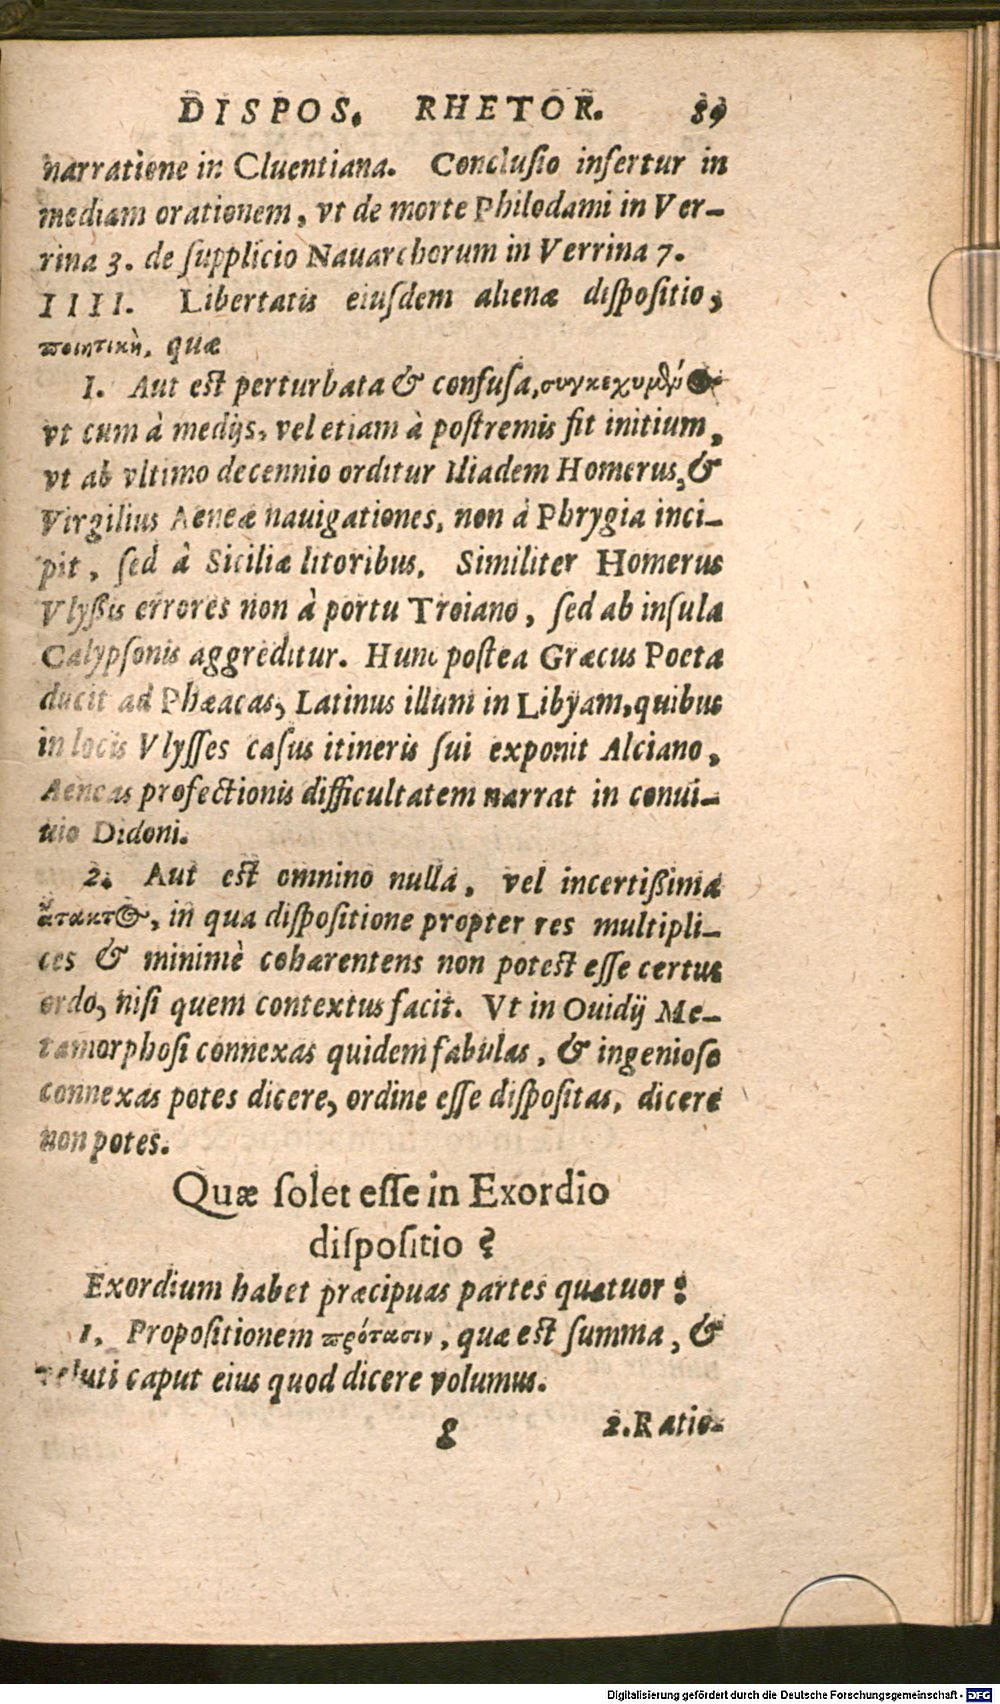 DISPOS. RHETOR. 89
narratione in Cluentiana. Conclusio insertur in
mediam orationem, vt de morte Philodami in Ver-
rina 3. de supplicio Nauarchorum in Verrina 7.
IIII. Libertatis eiusdem alienæ dispositio,
ποιητικὴ, quæ
1. Aut est perturbata & confusa,
vt cum à medijs, vel etiam à postremis fit initium,
vt ab vltimo decennio orditur Iliadem Homerus, &
Virgilius Aeneæ nauigationes, non à Phrygia inci-
pit, sed à Siciliæ litoribus. Similiter Homerus
Vlyßis errores non à portu Troiano, sed ab insula
Calypsonis aggreditur. Hunc postea Græcus Poeta
ducit ad Phæacas, Latinus illum in Libyam, quibus
in locis Vlysses casus itineris sui exponit Alciano,
Aeneas profectionis difficultatem narrat in conui-
uio Didoni.
2. Aut est omnino nulla, vel incertißima
ἄτακτος, in qua dispositione propter res multipli-
ces & minimè cohærenteis non potest esse certus
ordo, nisi quem contextus facit. Vt in Ouidij Me-
tamorphosi connexas quidem fabulas, & ingeniose
connexas potes dicere, ordine esse dispositas, dicere
non potes.
Quæ solet esse in Exordio
dispositio?
Exordium habet præcipuas partes quatuor:
1. Propositionem πρότασιν, quæ est summa, &
veluti caput eius quod dicere volumus.
g 2. Ratio-
Digitalisierung gefördert durch die Deutsche Forschungsgemeinschaft - DFG